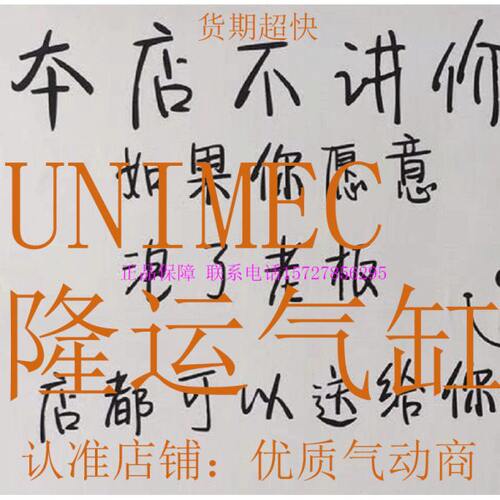 货期超快
本店不讲价
如果你愿意
UNIMEC
泡了老板
正品保障 联系电话15727856295
隆运气缸
店都可以送给你
认准店铺：优质气动商